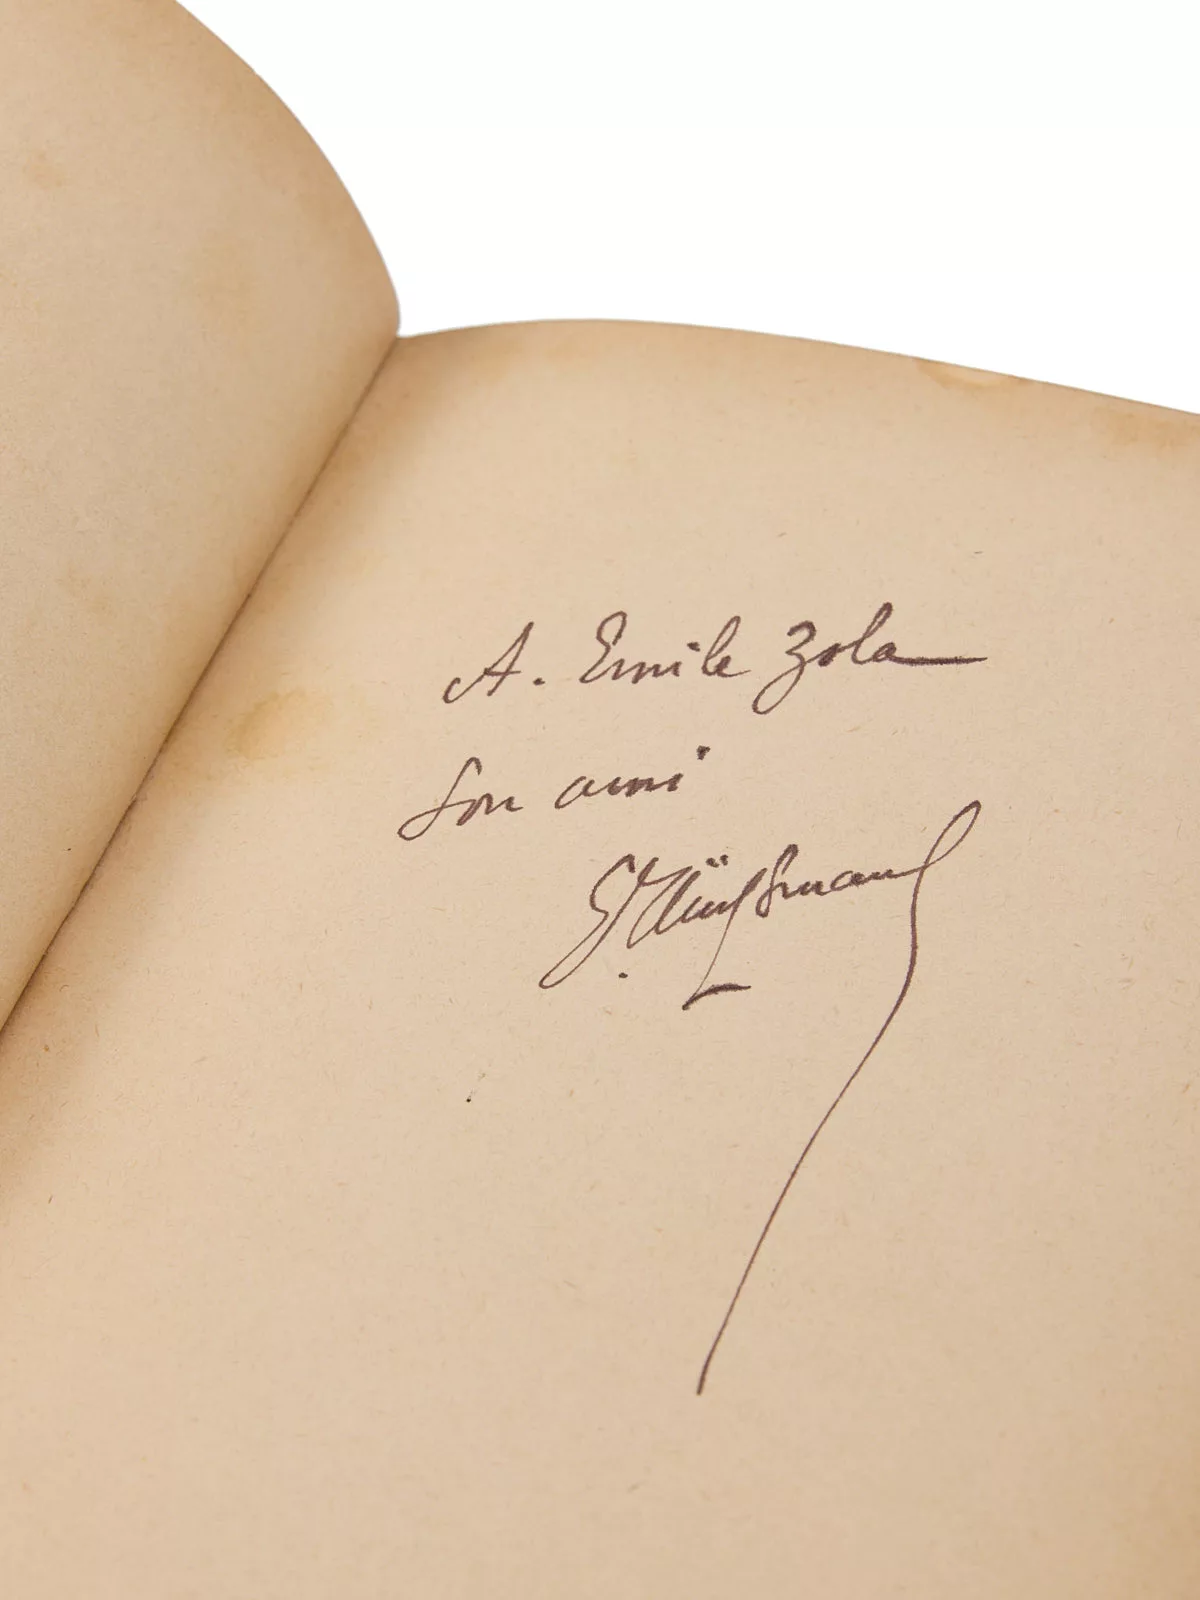 A. Emile Zola
Son ami
G. Huÿsmans